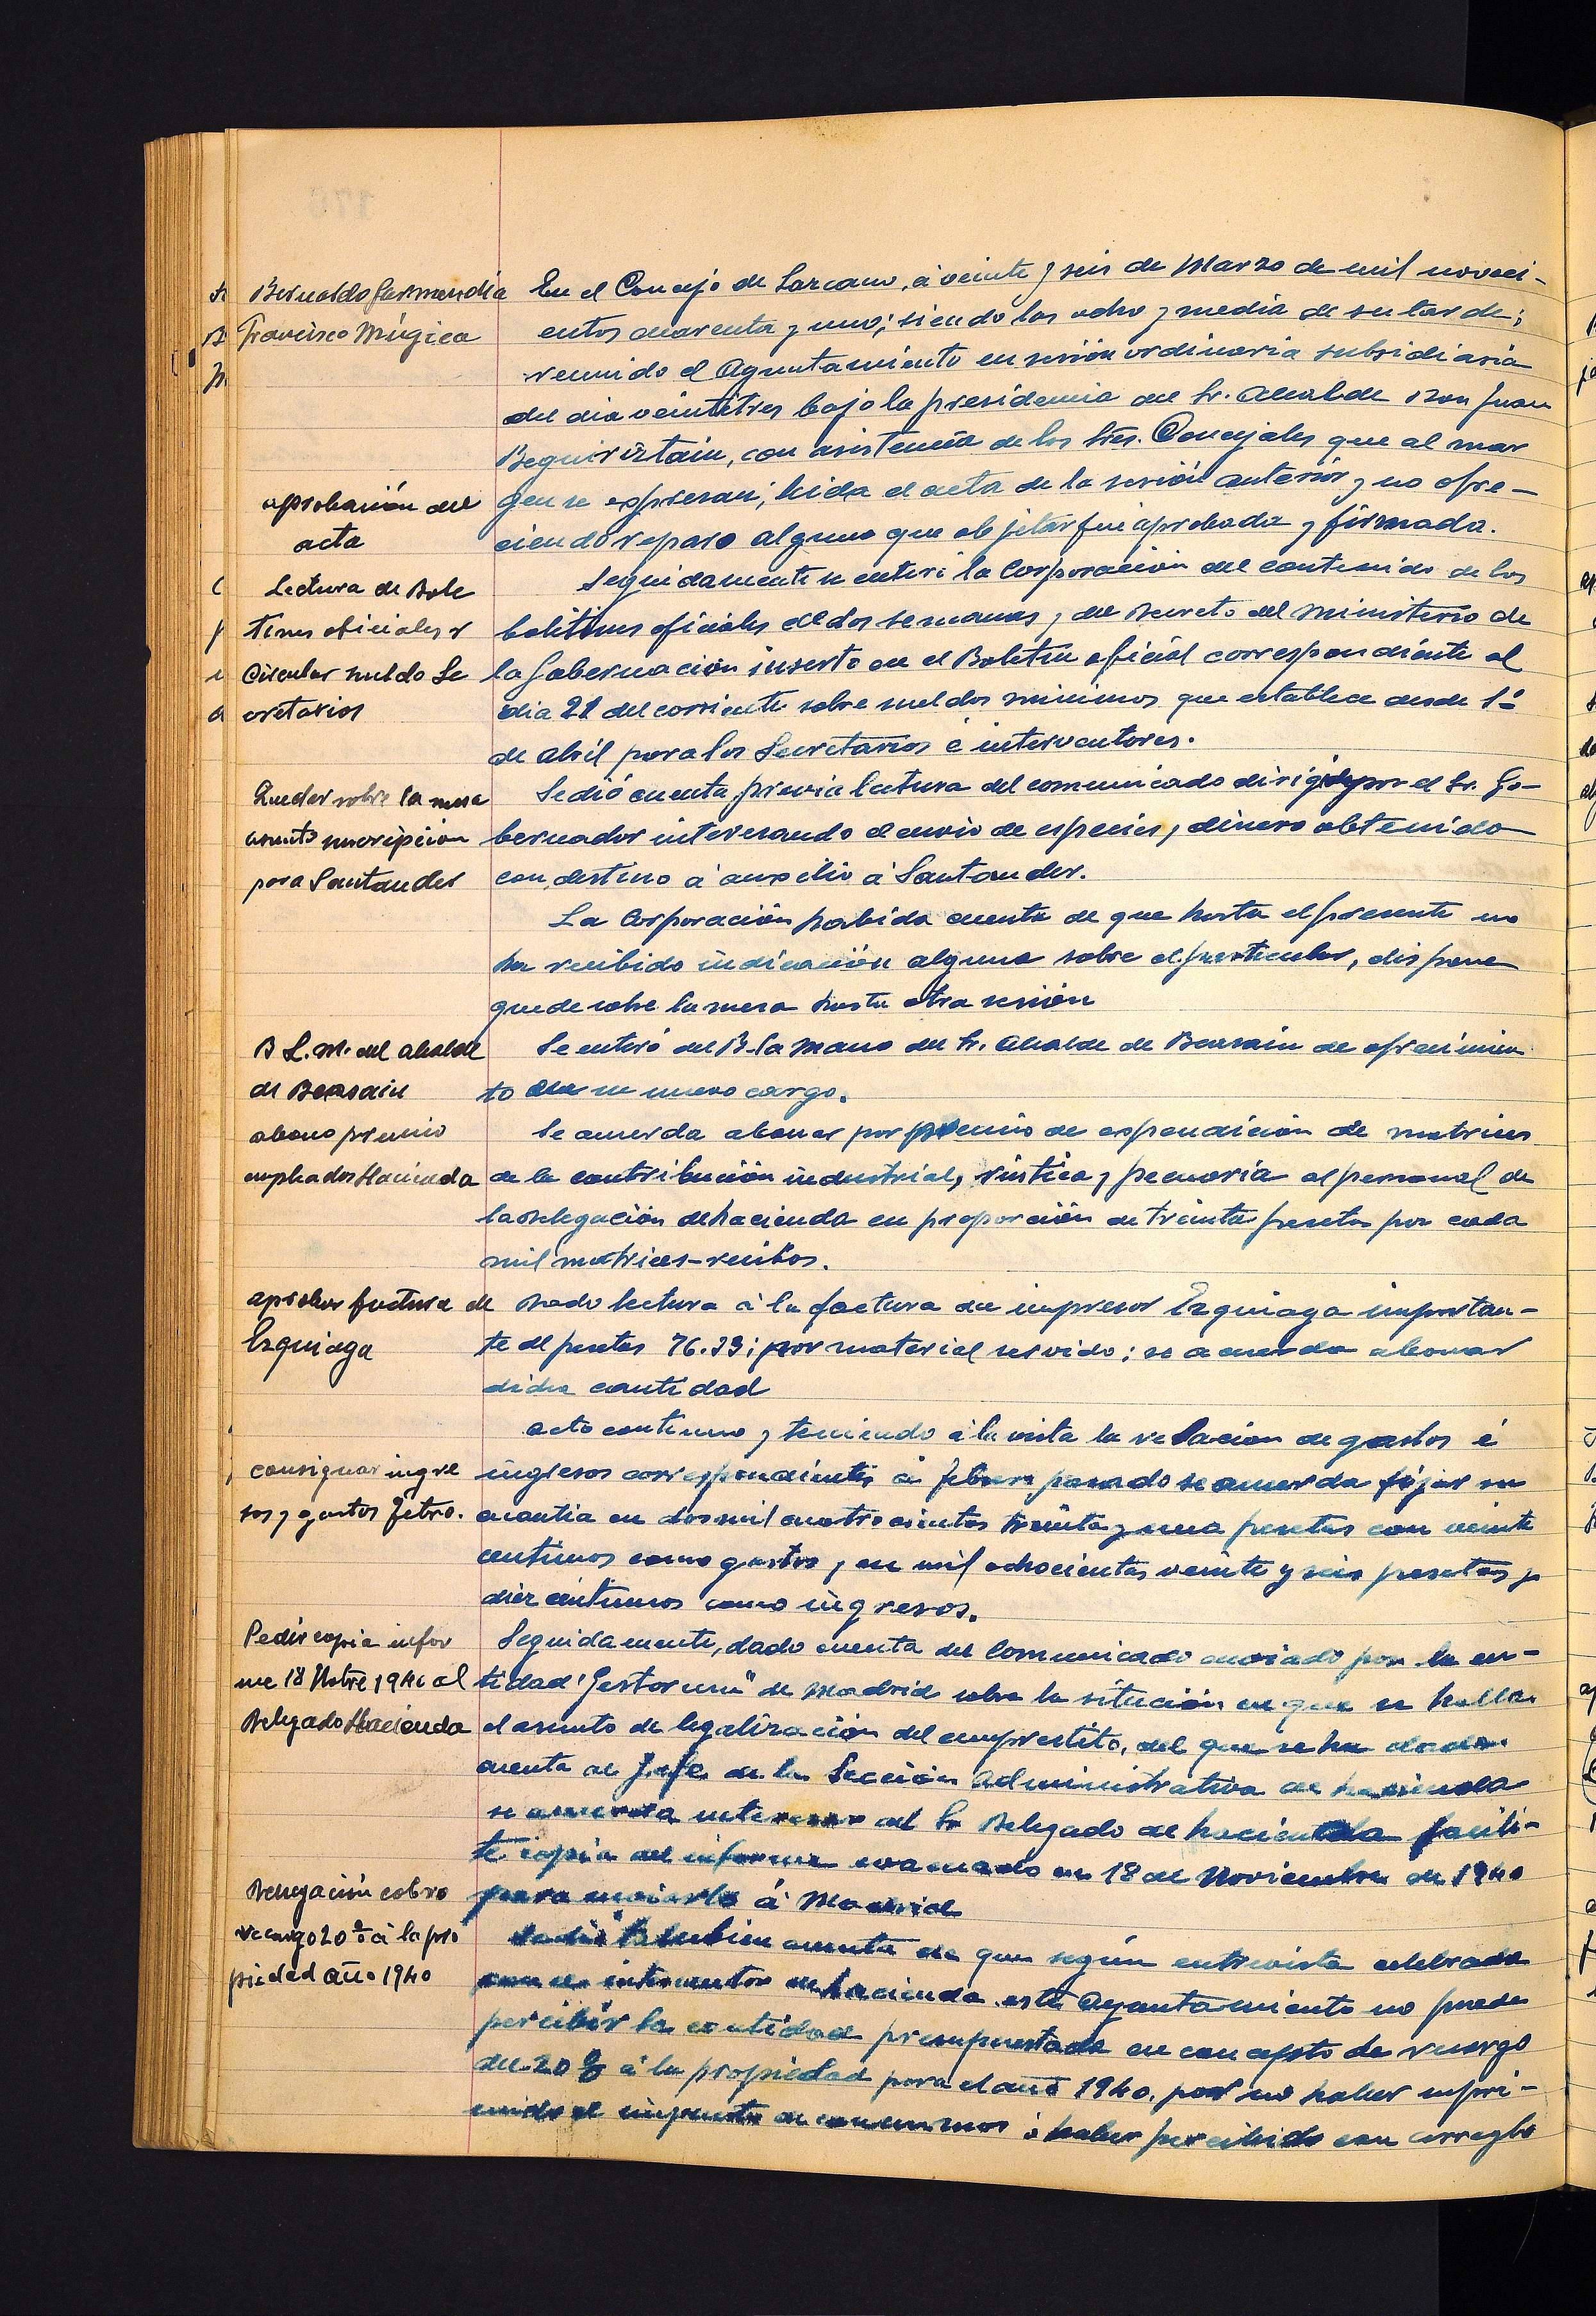 Bernaldo Garmendia
Francisco Múgica
En el Concejo de Lazcano, á veinte y seis de Marzo de mil noveci-
entos cuarenta y uno; siendo las ocho y media de su tarde;
reunido el Ayuntamiento en sesión ordinaria subsidiaria
del dia veintitres bajo la presidencia del Sr. Alcalde Don Juan
Beguiristain, con asistencia de los Sres. Concejales que al mar
gen se expresan; leida el acta de la sesión anterior y no ofre-
ciendo reparo alguno que objetar fué aprobada y firmada.
aprobación del
acta
Seguidamente se enteró la Corporación del contenido de los
boletines oficiales de dos semanas y del Decreto del Ministerio de
la Gobernación inserto en el Boletín oficial correspondiente al
dia 21 del corriente sobre sueldos minimos que establece desde 1º
de abril para los Secretarios é interventores.
Lectura de Bole
tines oficiales y
Circular sueldo Se
cretarios
Se dió cuenta previa lectura del comunicado dirigido por el Sr. Go-
bernador interesando el envio de especies y dinero obtenido
con destino á auxilio á Santander.
Quedar sobre la mesa
asunto suscripcion
para Santander
La Corporación habida cuenta de que hasta el presente no
ha recibido indicación alguna sobre el particular, dispone
quede sobre la mesa hasta otra sesión
B L. M. del alcalde
de Beasain
Se enteró del B. la Mano del Sr. Alcalde de Beasain de ofrecimien
to en su nuevo cargo.
abono premio
empleados Hacienda
Se acuerda abonar por premio de expendición de matrices
de la contribución industrial, rústica y pecuaria al personal de
la Delegación de hacienda en proporción de treinta pesetas por cada
mil matrices-recibos.
aprobar factura de
Ezquiaga
Dado lectura á la factura del impresor Ezquiaga importan-
te de pesetas 76.73; por material servido; se acuerda abonar
dicha cantidad
acto continuo y teniendo á la vista la relacion de gastos é
ingresos correspondientes á febrero pasado se acuerda fijar su
cuantia en dos mil cuatrocientas treinta y una pesetas con veinte
centimos como gastos y en mil ochocientas veinte y seis pesetas y
diez centimos como ingresos.
consignar ingre
sos y gastos febro.
Pedir copia infor
me 18 Nobre 1940 al
Delegado Hacienda
Seguidamente, dado cuenta del Comunicado enviado por la en-
tidad "Gestorum" de Madrid sobre la situación en que se halla
el asunto de legalización del emprestito, del que se ha dado
cuenta al Jefe de la Sección administrativa de hacienda
se acuerda interesar del Sr Delegado de hacienda facili-
te copia del informe evacuado en 18 de Noviembre de 1940
para enviarlo á Madrid
Denegación cobro
recargo 20% á la pro
piedad año 1940
Se dió tambien cuenta de que según entrevista celebrada
con el interventor de hacienda este Ayuntamiento no puede
percibir la cantidad presupuestada en concepto de recargo
del 20% á la propiedad para el año 1940, por no haber supri-
mido el impuesto de consumos ó haber percibido con arreglo